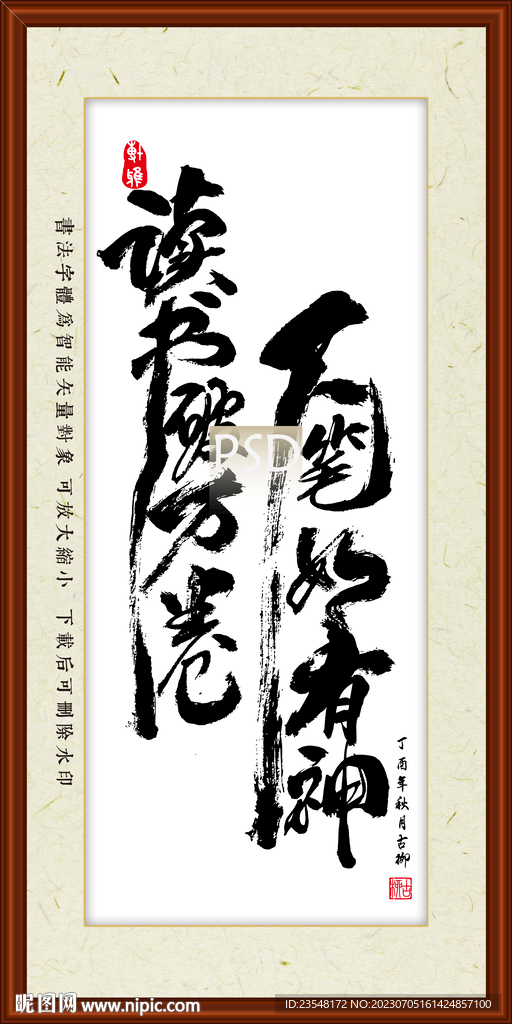 軒雅
读书破万卷
下笔如有神
丁酉年秋月古柳
書法字體為智能矢量對象 可放大縮小 下載后可刪除水印
PSD
昵图网 www.nipic.com
ID:23548172 NO:20230705161424857100